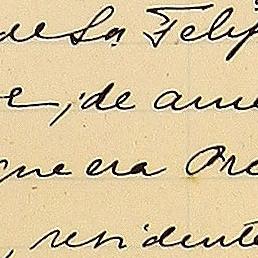 de Sn. Felip
e, de ame
que era Pre
, residente